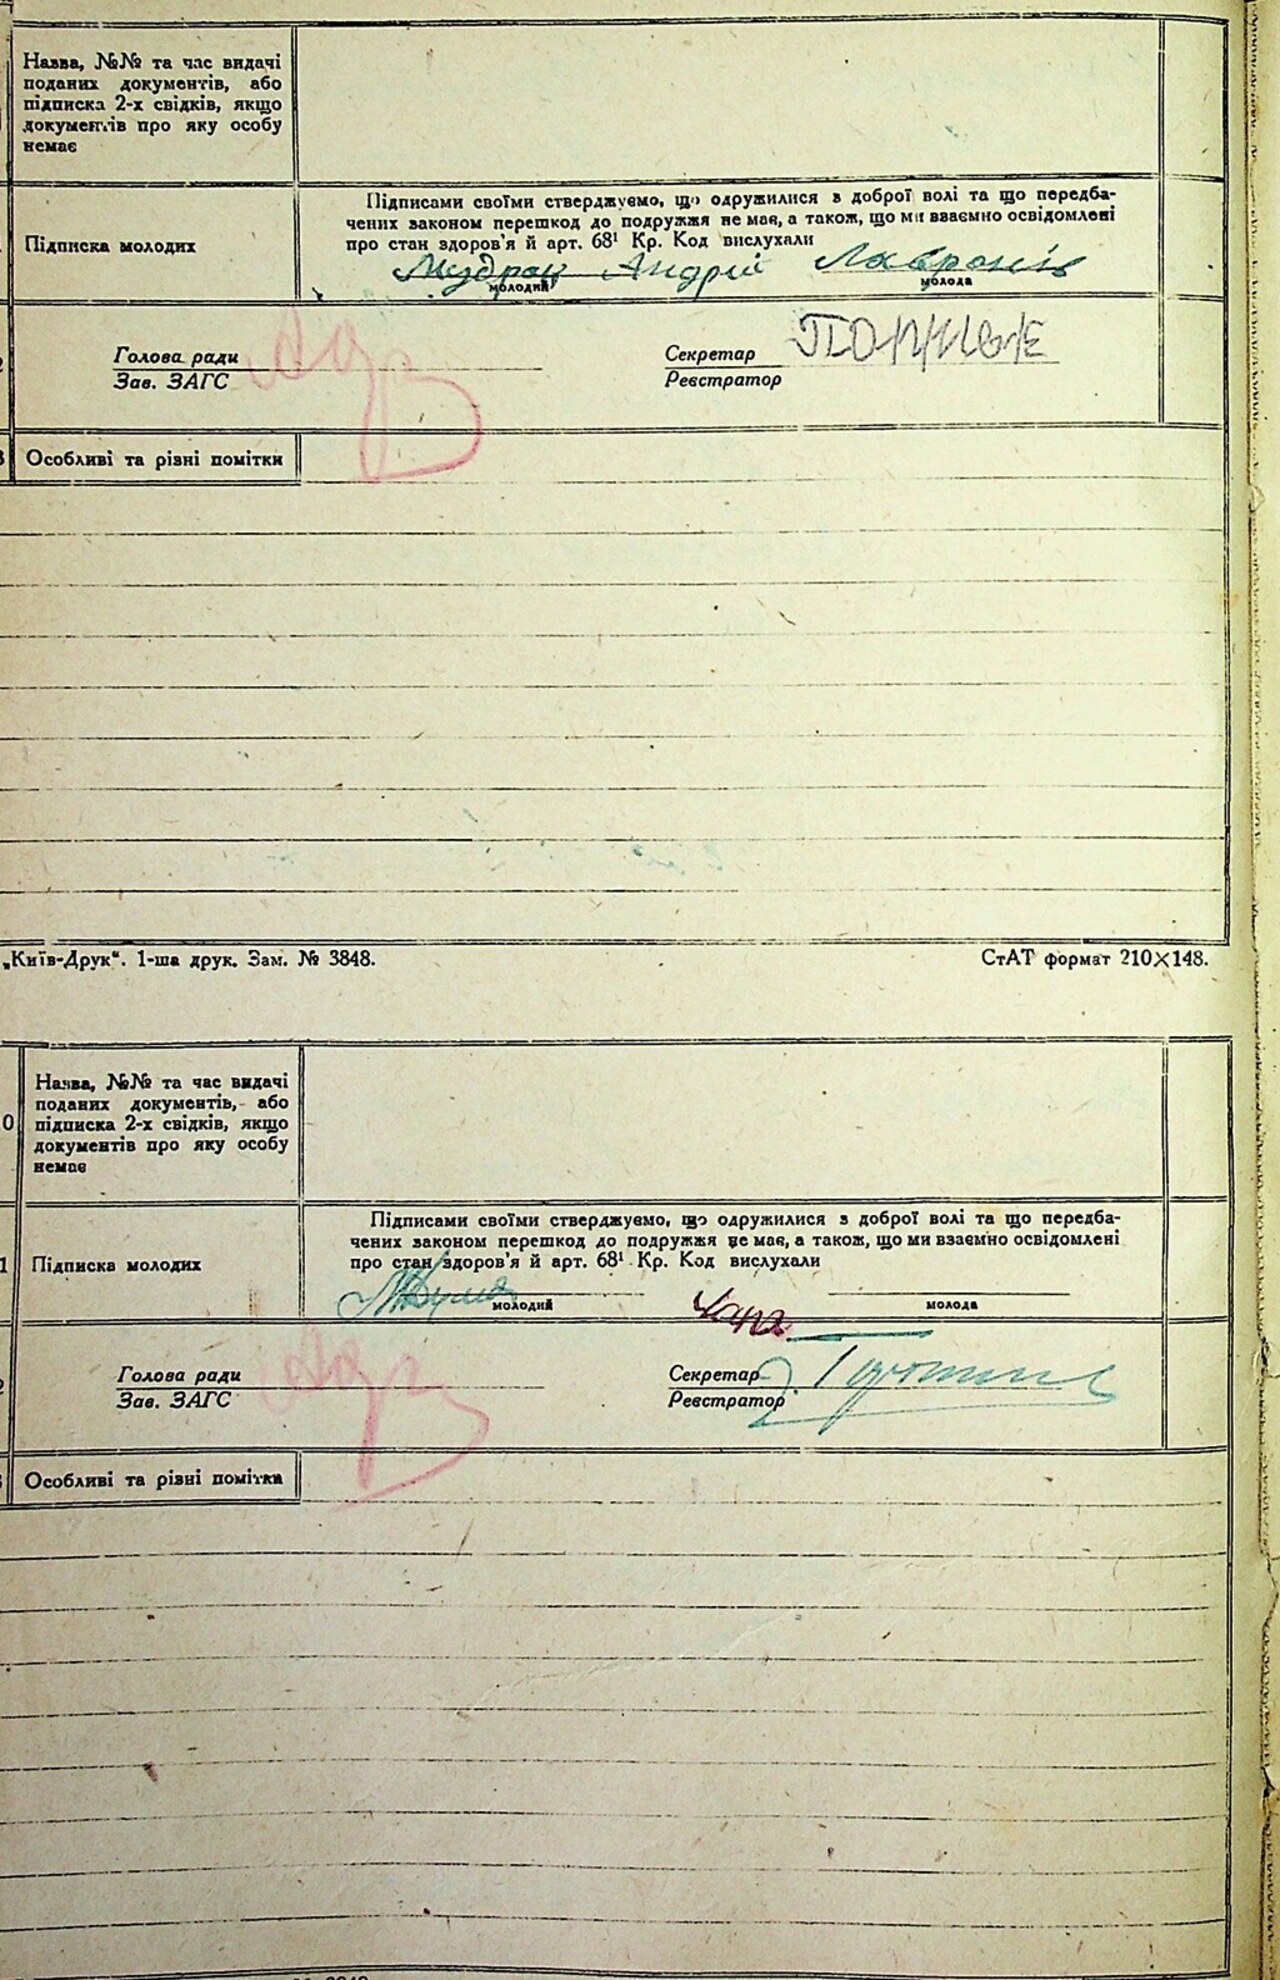 Назва, №№ та час видачі
поданих документів, або
підписка 2-х свідків, якщо
документів про яку особу
немає
Підписка молодих
Підписами своїми стверджуємо, що одружилися з доброї волі та що передба-
чених законом перешкод до подружжя не має, а також, що ми взаємно освідомлені
про стан здоров'я й арт. 68¹ Кр. Код вислухали
Андрій
молодий
молода
Голова ради
Зав. ЗАГС
Секретар
Реєстратор
Особливі та різні помітки
„Київ-Друк“. 1-ша друк. Зам. № 3848.
СтАТ формат 210×148.
0
Назва, №№ та час видачі
поданих документів, або
підписка 2-х свідків, якщо
документів про яку особу
немає
1
Підписка молодих
Підписами своїми стверджуємо, що одружилися з доброї волі та що передба-
чених законом перешкод до подружжя не має, а також, що ми взаємно освідомлені
про стан здоров'я й арт. 68¹ Кр. Код вислухали
молодий
молода
Голова ради
Зав. ЗАГС
Секретар
Реєстратор
Особливі та різні помітки